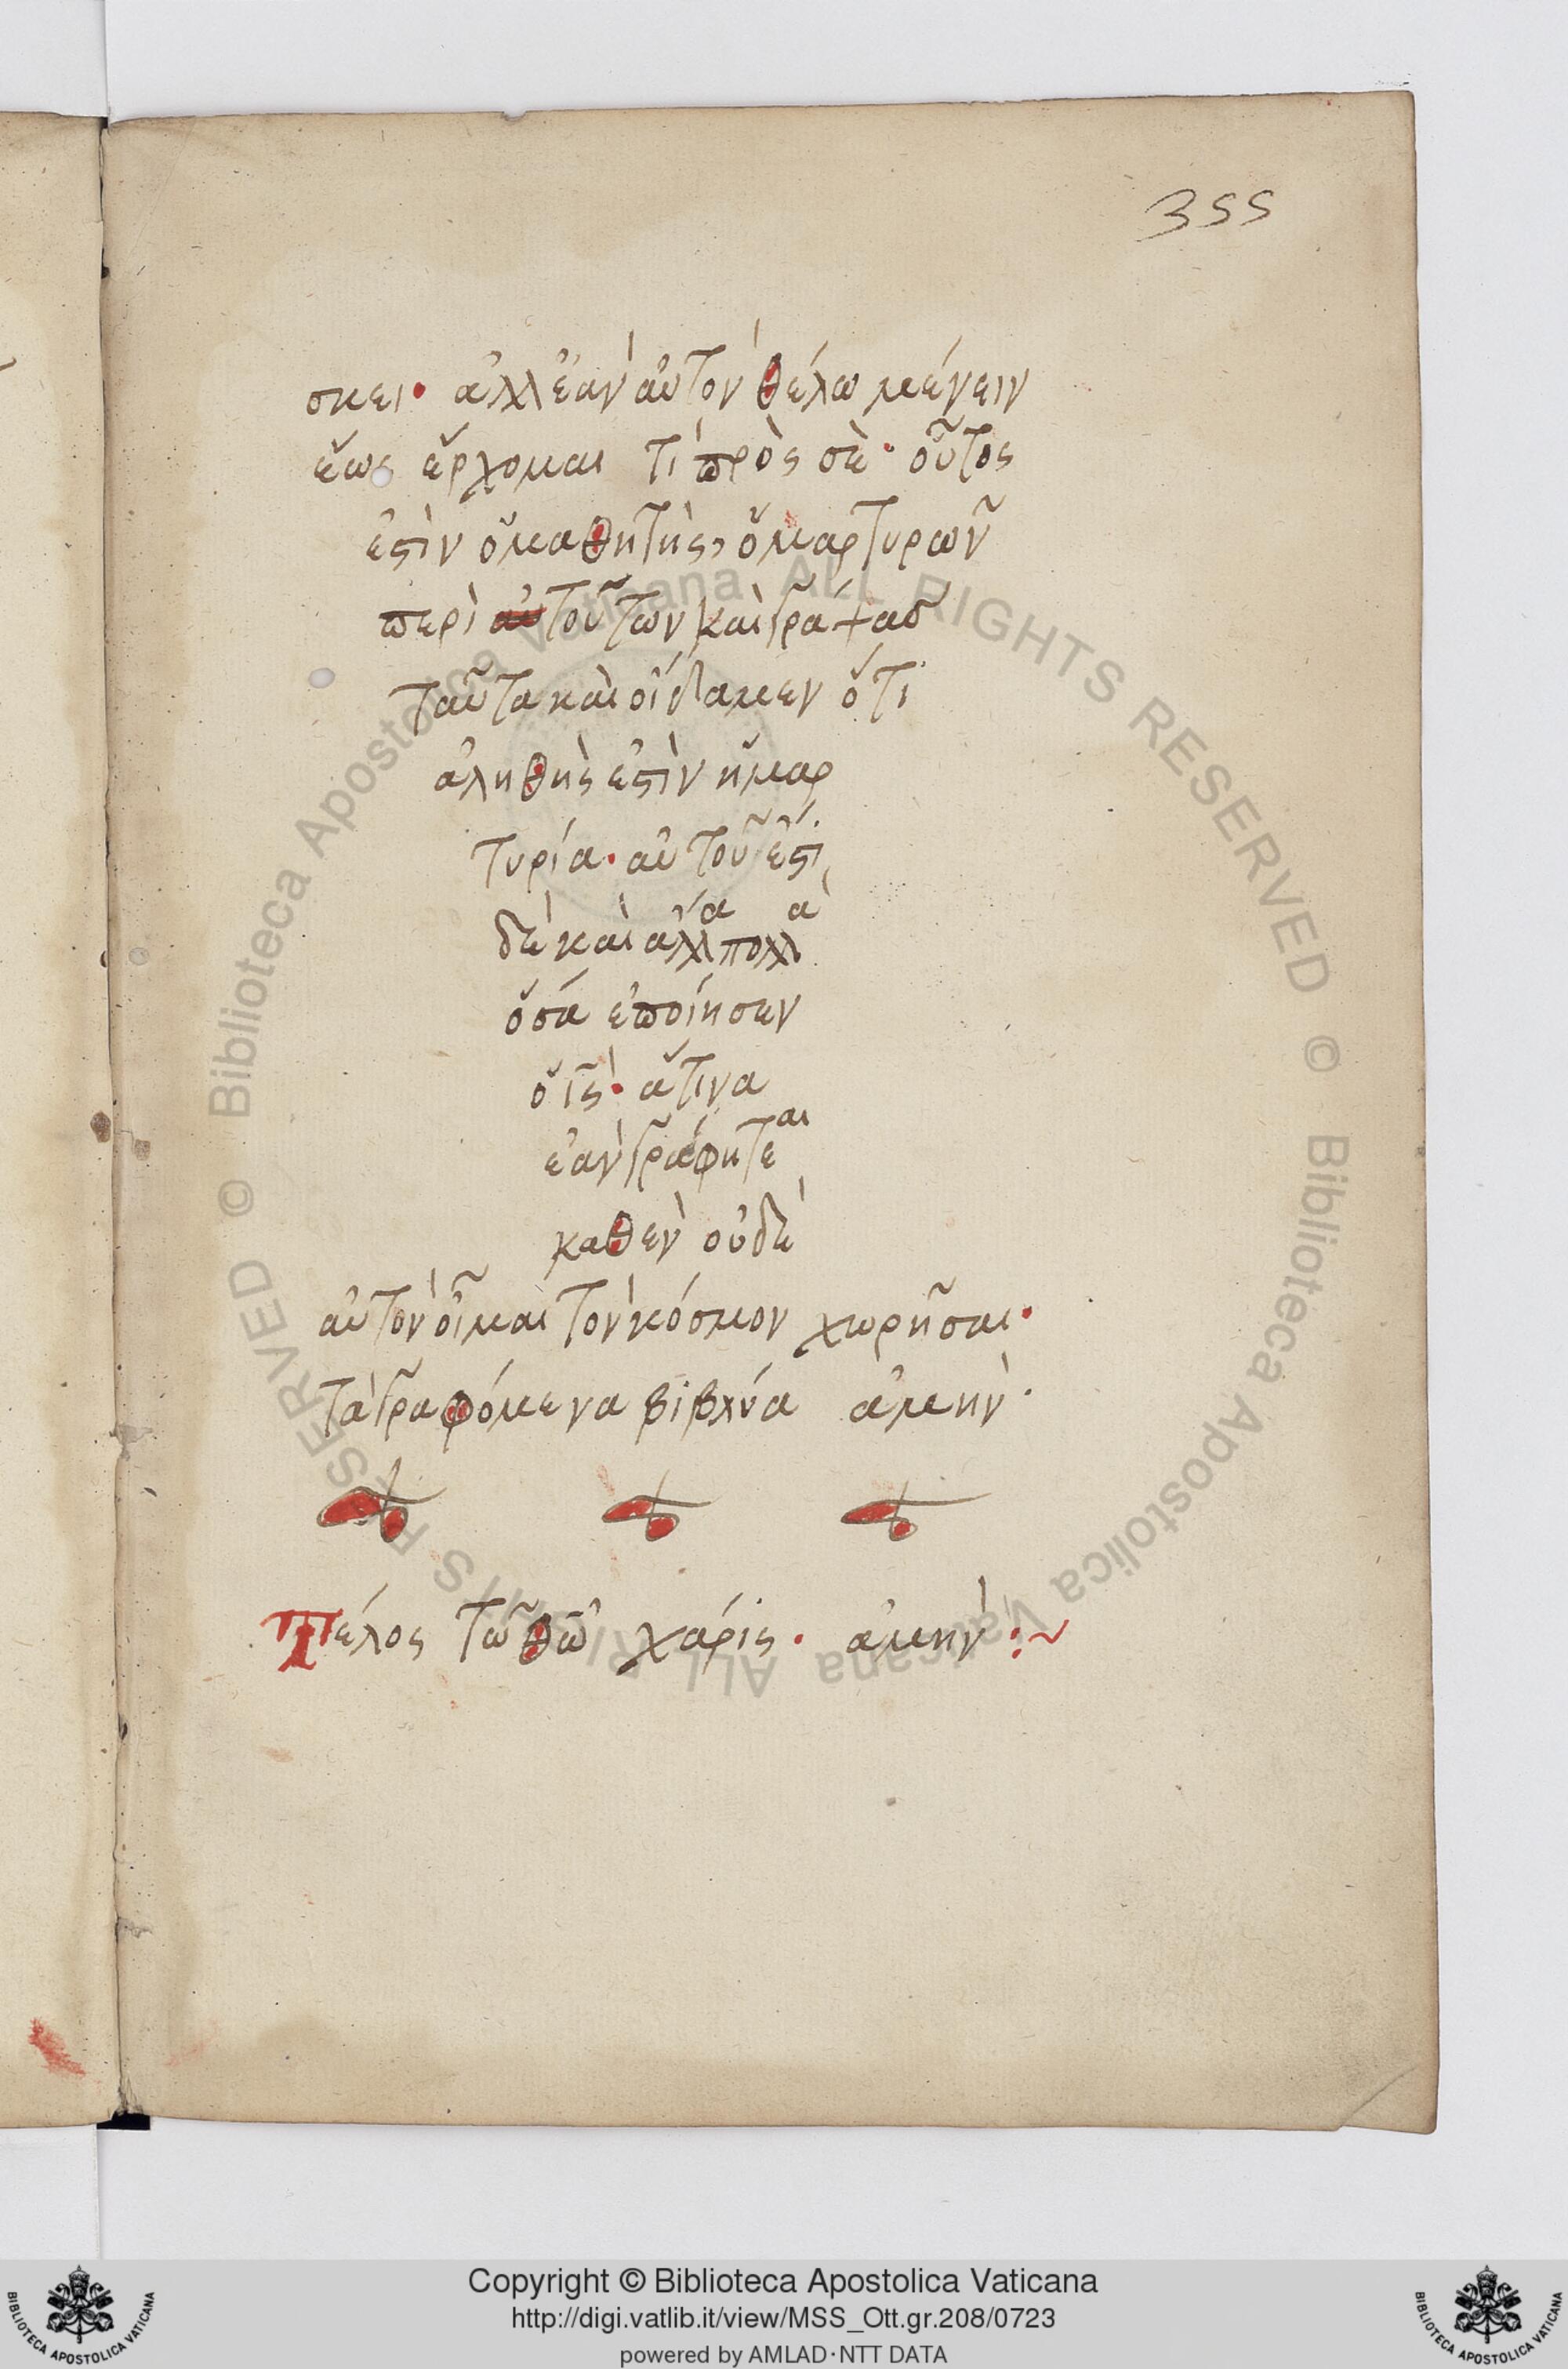 355
σκει· ἀλλ ἐὰν αὐτὸν θέλω μένειν
ἕως ἔρχομαι τί πρὸς σέ· οὗτός
ἐστὶν ὁ μαθητὴς, ὁ μαρτυρῶν
περὶ τούτων καὶ γράψας
ταῦτα καὶ οἴδαμεν ὅτι
ἀληθής ἐστὶν ἡ μαρ
τυρία· αὐτοῦ ἔστι
δὲ καὶ ἄλλα πολλὰ
ὅσα ἐποίησεν
ὁ ις· ἅτινα
ἐὰν γράφηται
καθὲν οὐδὲ
αὐτὸν οἶμαι τὸν κόσμον χωρῆσαι·
τὰ γραφόμενα βιβλύα ἀμήν·
Τέλος τῶ θω χάρις· ἀμὴν :~
© Biblioteca Apostolica Vaticana ALL RIGHTS RESERVED © Biblioteca Apostolica Vaticana ALL RIGHTS RESERVED
Copyright © Biblioteca Apostolica Vaticana
http://digi.vatlib.it/view/MSS_Ott.gr.208/0723
powered by AMLAD·NTT DATA
BIBLIOTECA APOSTOLICA VATICANA
BIBLIOTECA APOSTOLICA VATICANA